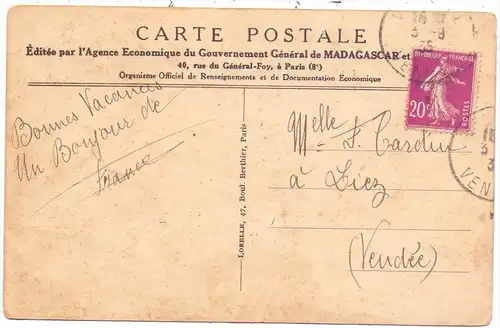 CARTE POSTALE
Éditée par l'Agence Economique du Gouvernement Général de MADAGASCAR et
40, rue du Général-Foy, à Paris (8e)
Organisme Officiel de Renseignements et de Documentation Economique
Bonnes Vacances
Un Bonjour de
France
LORELLE, 47, Boul. Berthier, Paris
Melle F. Cardin
à Liez
(Vendée)
RÉPUBLIQUE FRANÇAISE
20c
POSTES
3-9
VEN